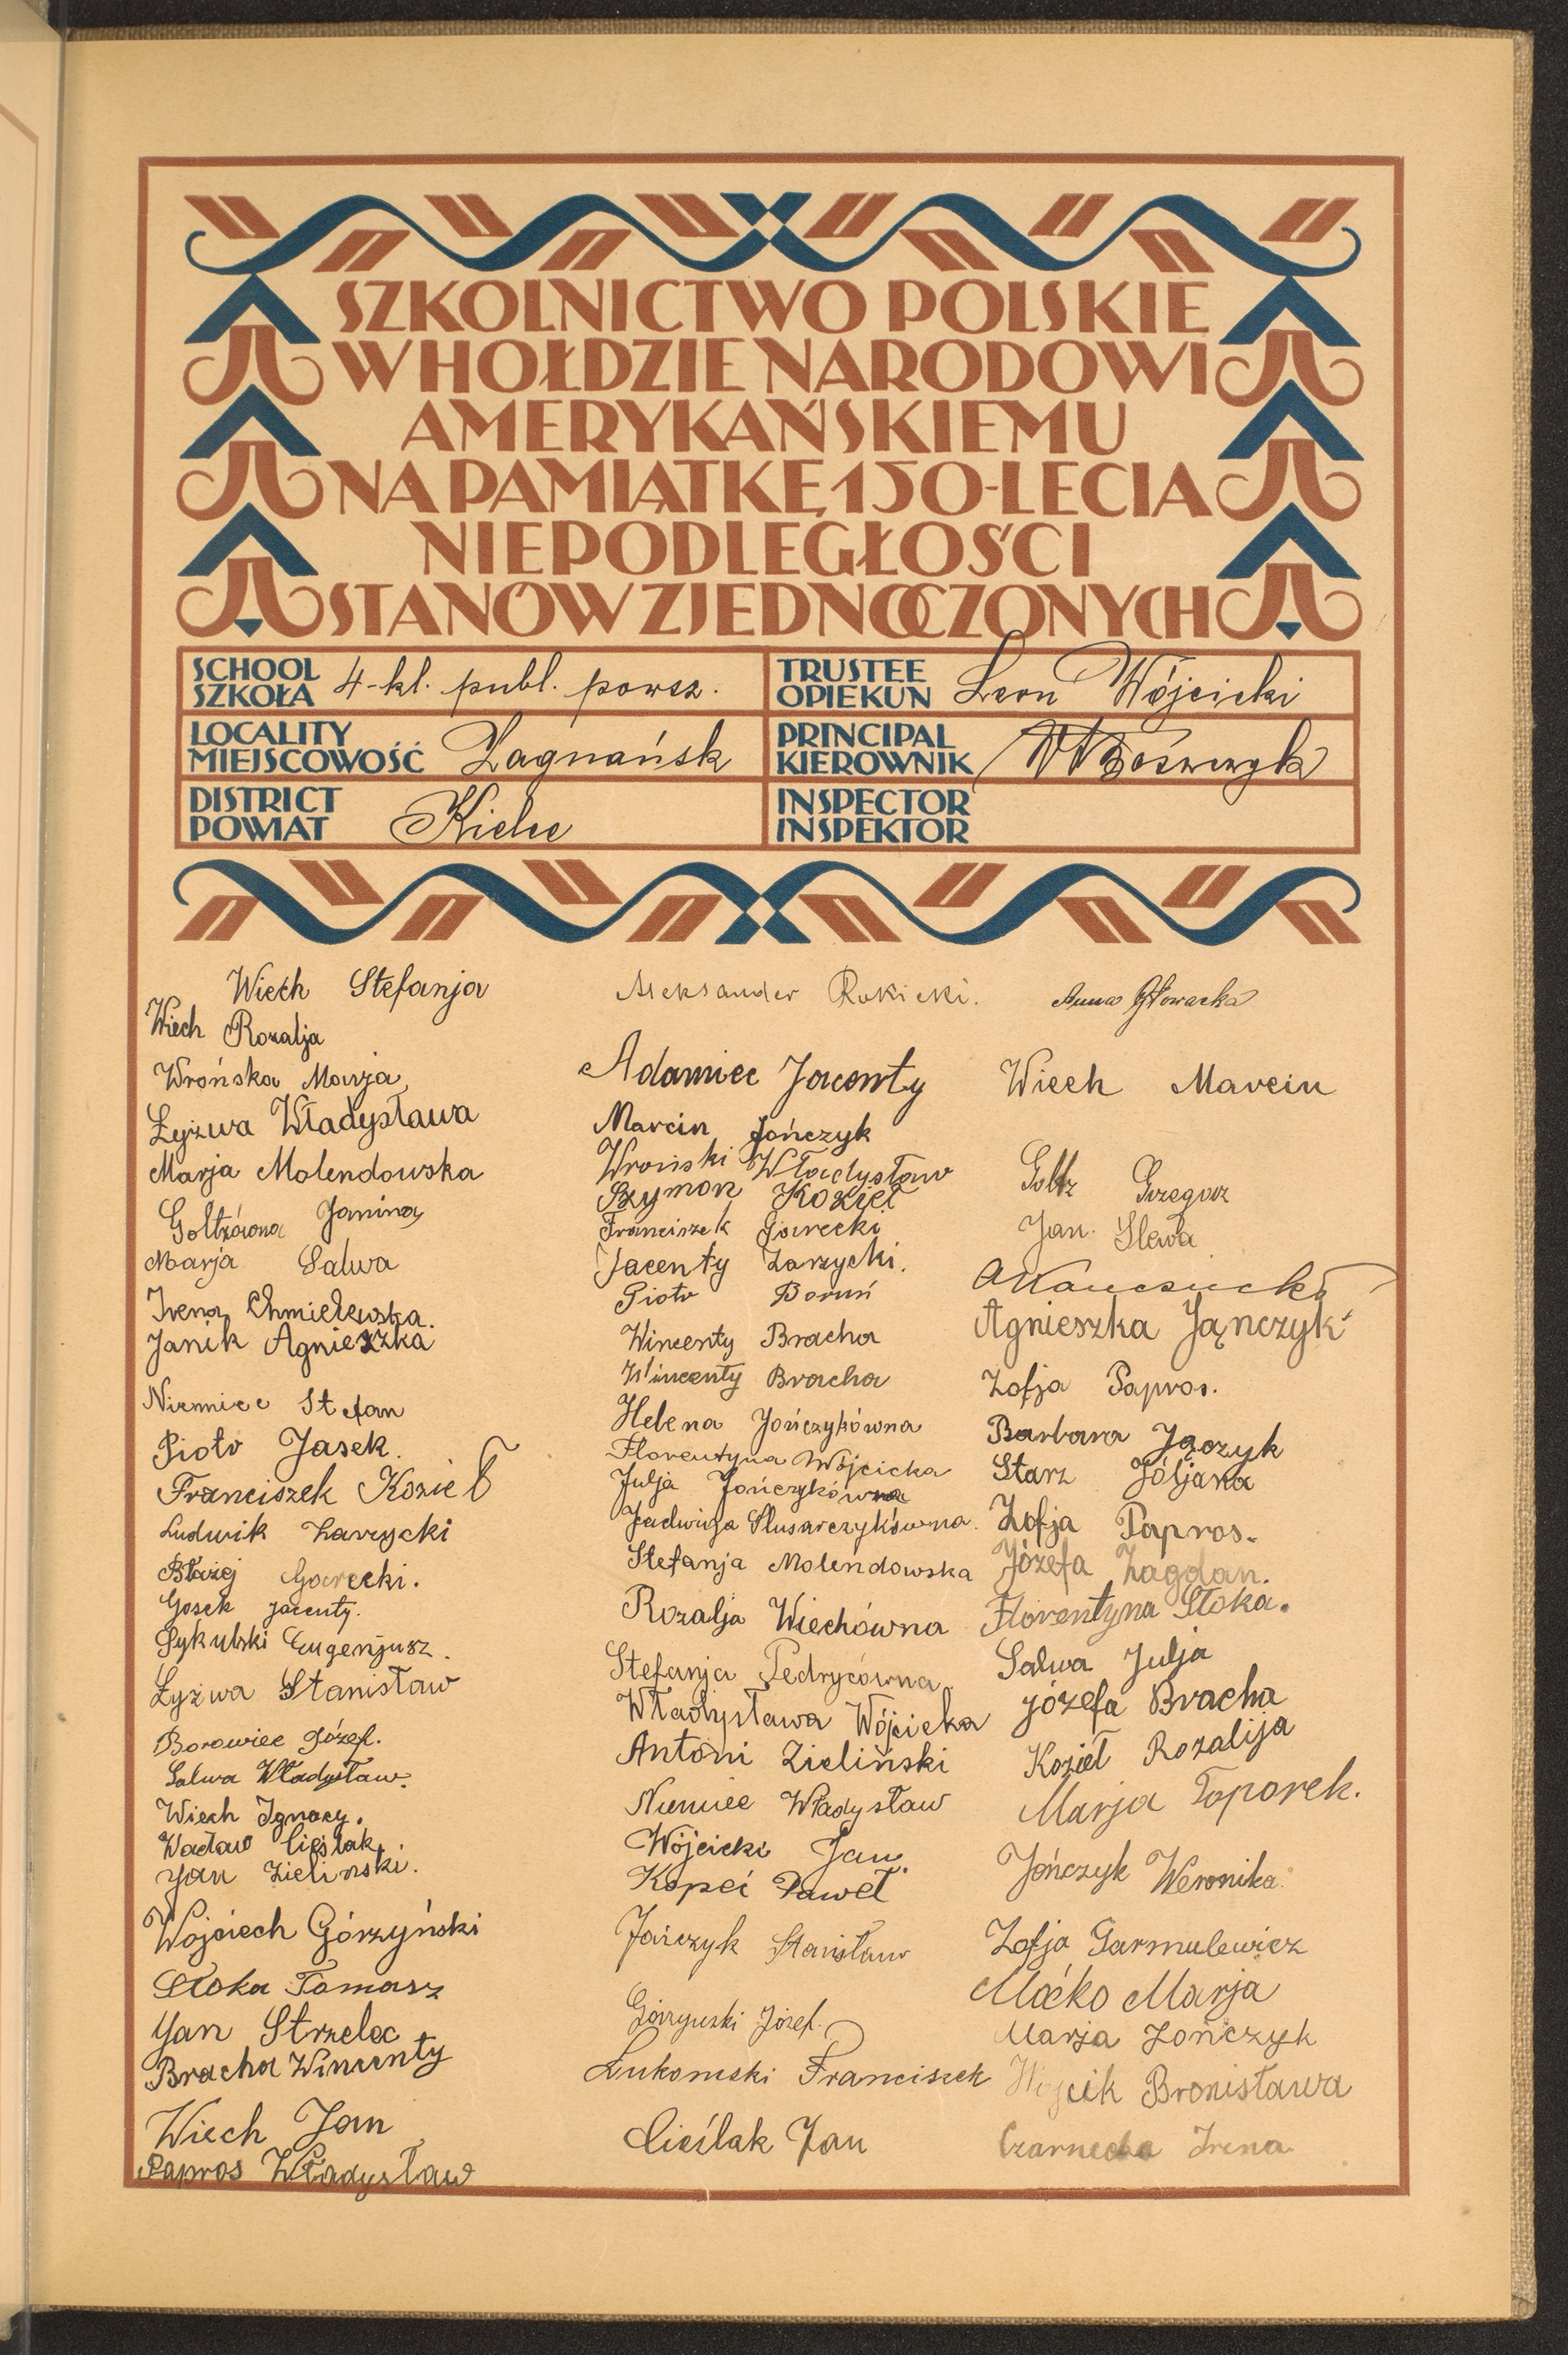 SZKOLNICTWO POLSKIE
W HOŁDZIE NARODOWI
AMERYKAŃSKIEMU
NA PAMIĄTKĘ 150-LECIA
NIEPODLEGŁOŚCI
STANÓW ZJEDNOCZONYCH
SCHOOL
SZKOŁA 4-kl. publ. powsz.
TRUSTEE
OPIEKUN Leon Wójcicki
LOCALITY
MIEJSCOWOŚĆ Zagnańsk
PRINCIPAL
KIEROWNIK
DISTRICT
POWIAT Kielce
INSPECTOR
INSPEKTOR
Wiech Stefanja
Wiech Rozalja
Wrońska Marja
Łyżwa Władysława
Marja Molendowska
Goltzówna Janina
Marja Salwa
Irena Chmielewska.
Janik Agnieszka
Niemiec Stefan
Piotr Jasek.
Franciszek Kozieł
Ludwik Zarzycki
Błażej Garecki.
Gosek Jacenty.
Sykulski Eugenjusz.
Łyżwa Stanisław
Borowiec Józef.
Salwa Władysław.
Wiech Ignacy.
Wacław Cieślak,
Jan Zieliński.
Wojciech Górzyński
Stoka Tomasz
Jan Strzelec
Bracha Wincenty
Wiech Jan
Papros Władysław
Aleksander Rokicki.
Adamiec Jacenty
Marcin Jończyk
Wroński Władysław
Szymon Kozieł
Franciszek Garecki
Jacenty Zarzycki.
Piotr Boruń
Wincenty Bracha
Wincenty Bracha
Helena Jończykówna
Florentyna Wójcicka
Julja Jończykówna
Jadwiga Ślusarczykówna.
Stefanja Molendowska
Rozalja Wiechówna
Stefanja Pedrycówna
Władysława Wójcicka
Antoni Zieliński
Niemiec Władysław
Wójcicki Jan.
Kopeć Paweł
Jończyk Stanisław
Górzyński Józef.
Łukomski Franciszek
Cieślak Jan
Anna Głowacka
Wiech Marcin
Goltz Grzegorz
Jan
Agnieszka Jąnczyk
Zofja Papros.
Barbara Jączyk
Starz Jóljana
Zofja Papros.
Józefa Zagdan.
Florentyna Stoka.
Salwa Julja
Józefa Bracha
Kozieł Rozalija
Marja Toporek.
Jończyk Weronika.
Zofja Garmulewicz
Maćko Marja
Marja Jończyk
Wójcik Bronisława
Czarnecka Irena